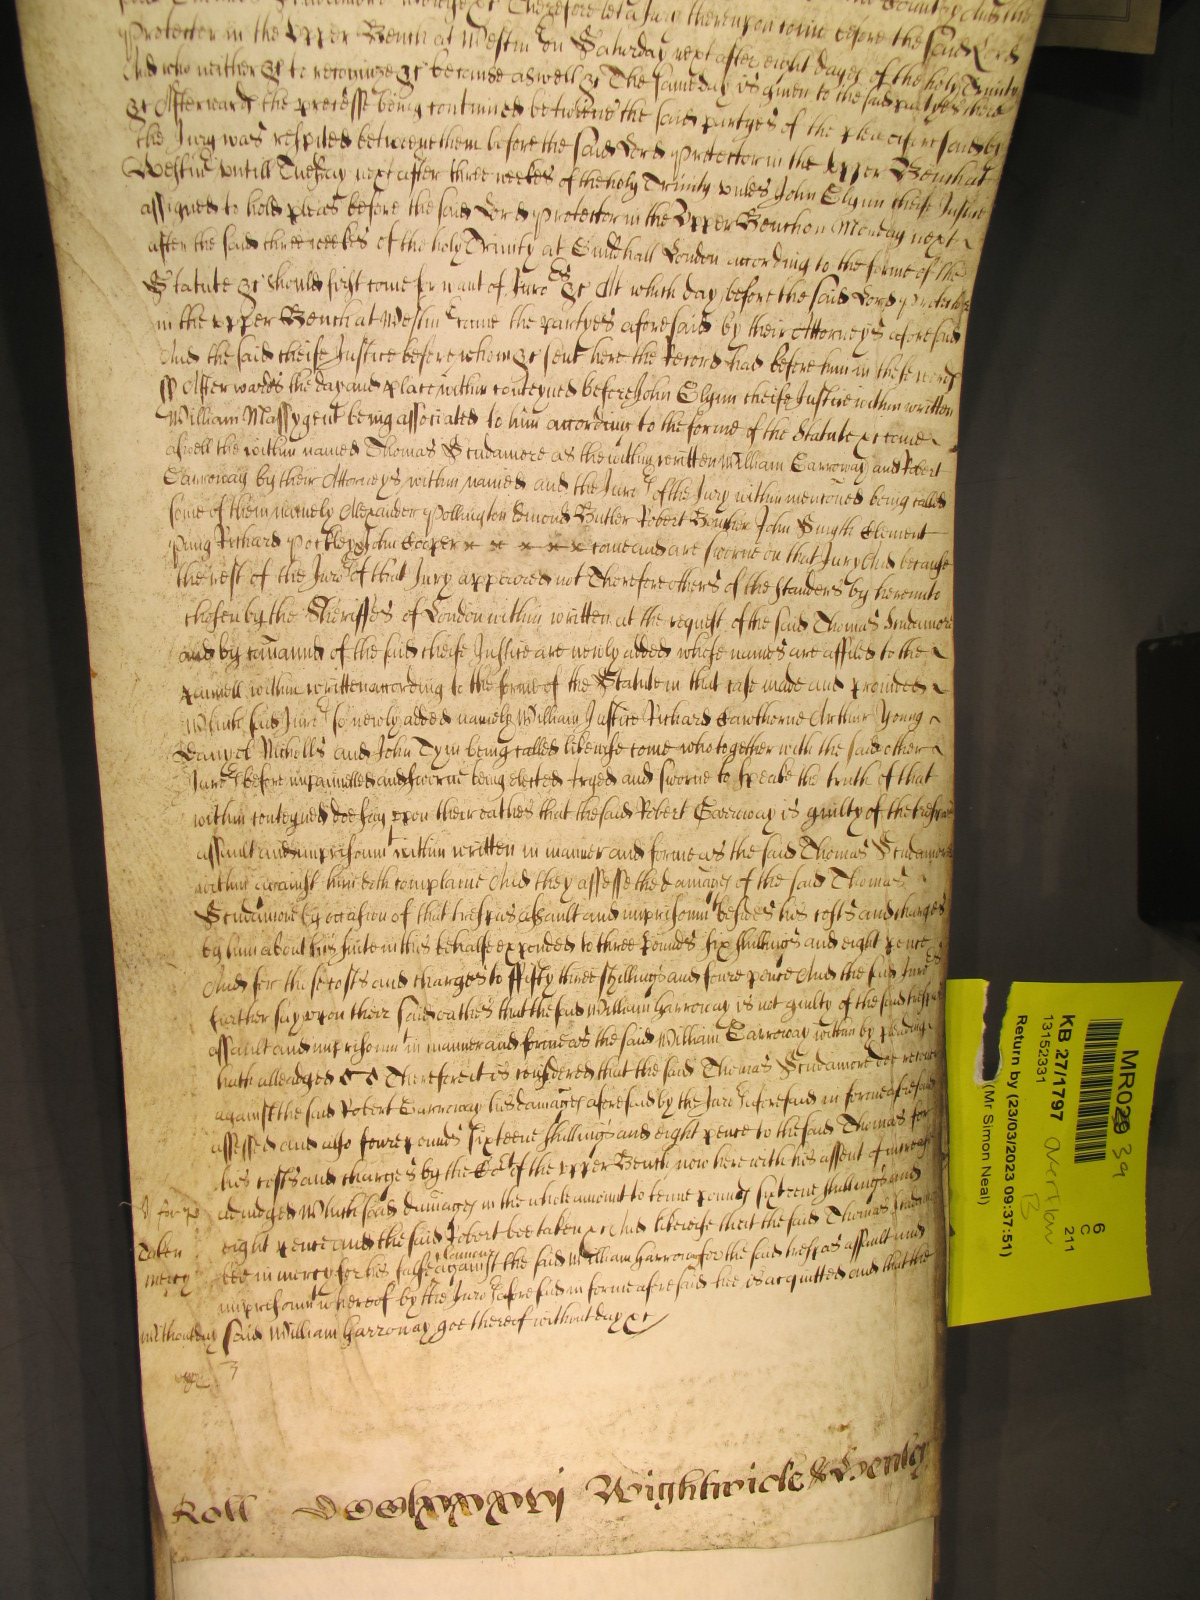 Thomas Scudamore likewise &c Therefore let a Jury thereupon come before the said Lord
Protector in the Upper Bench at Westm on Saturday next after eight dayes of the holy Trinity
And who neither &c to recognize &c because aswell &c The same day is given to the said partyes there
&c Afterwards the processe being continued betweene the said partyes of the plea aforesaid by
the Jury was respited betweene them before the said Lord Protector in the Upper Bench at
Westm untill Tuesday next after three weekes of the holy Trinity unles John Glynn cheife Justice
assigned to hold pleas before the said Lord Protector in the Upper Bench on Monday next
after the said three weekes of the holy Trinity at Guildhall London according to the forme of the
Statute &c should first come for want of Juro rs &c At which day before the said Lord Protector
in the Upper Bench at Westm come the partyes aforesaid by their Attorneys aforesaid
And the said cheife Justice before whom &c sent here the Record had before him in these words
ss Afterwards the day and place within conteyned before John Glynn cheife Justice within written
William Massy gent being associated to him according to the forme of the Statute &c come
aswell the within named Thomas Scudamore as the within written William Carroway and Robert
Carroway by their Attorneys within named and the Juro rs of the Jury within mencioned being called
some of them namely Alexander Pollington Edmond Butler Robert John Smyth Clement
Richard Pockley John Cooper x x x x x x come and are sworne on that Jury And because
the rest of the Juro rs of that Jury appeared not Therefore others of the standers by hereunto
chosen by the Sheriffes of London within written at the request of the said Thomas Scudamore
and by comannd of the said cheife Justice are newly added whose names are affiled to the
pannell within written according to the forme of the Statute in that case made and provided
Which said Juro rs so newly added namely William Justice Richard Cawthorne Arthur Young
Danyel Nicholls and John Tym being called likewise come who together with the said other
Juro rs before impannelled and sworne being elected tryed and sworne to speake the truth of that
within conteyned doe say upon their oathes that the said Robert Carroway is guilty of the trespas
assault and imprisonm t within written in manner and forme as the said Thomas Scudamore
within against him doth complaine And they assesse the damages of the said Thomas
Scudamore by occasion of that trespas assault and imprisonm t besides his costs and charges
by him about his suite in this behalfe expended to three pounds six shillings and eight pence
And for those costs and charges to fifty three shillings and foure pence And the said Juro rs
further say upon their said oathes that the said William Carroway is not guilty of the said trespas
assault and imprisonm t in manner and forme as the said William Carroway within by pleading
hath alleadged Therefore it is considered that the said Thomas Scudamore doe recover
against the said Robert Carroway his damages aforesaid by the Juro rs aforesaid in forme aforesaid
assessed and also foure pounds sixteene shillings and eight pence to the said Thomas for
his costs and charges by the Co rt of the Upper Bench now here with his assent of increase
adjudged Which said damages in the whole amount to tenne pounds sixteene shillings and
eight pence and the said Robert bee taken &c And likewise that the said Thomas Scudamore
Taken
bee in mercy for his false clamour against the said William Carroway for the said trespas assault and
mercy
imprisonm t whereof by the Juro rs aforesaid in forme aforesaid hee is acquitted and that the
without day
said William Carroway goe thereof without day &c
Roll Wightwicke &
MR029 39
6
C
211
KB 27/1797
overflow
B
13152331
Return by (23/03/2023 09:37:51)
(Mr Simon Neal)